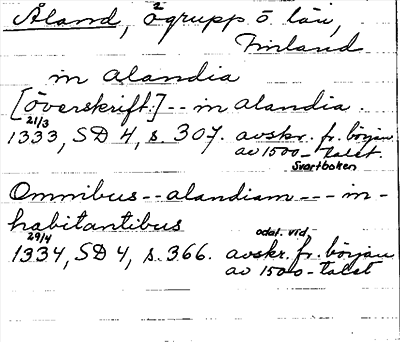 Åland, ögrupp o. län,
2
Finland
in alandia
[överskrift:] -- in alandia.
21/3
1333, SD 4, s. 307. avskr. fr. början
av 1500-talet.
Svartboken
Omnibus -- alandiam --- in-
habitantibus
29/4 odat. vid.
1334, SD 4, s. 366. avskr. fr. början
av 1500-talet